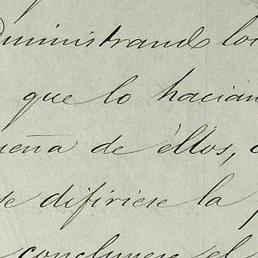 uministrando los
que lo hacian
ueña de éllos,
se difiriese la
concluyese el